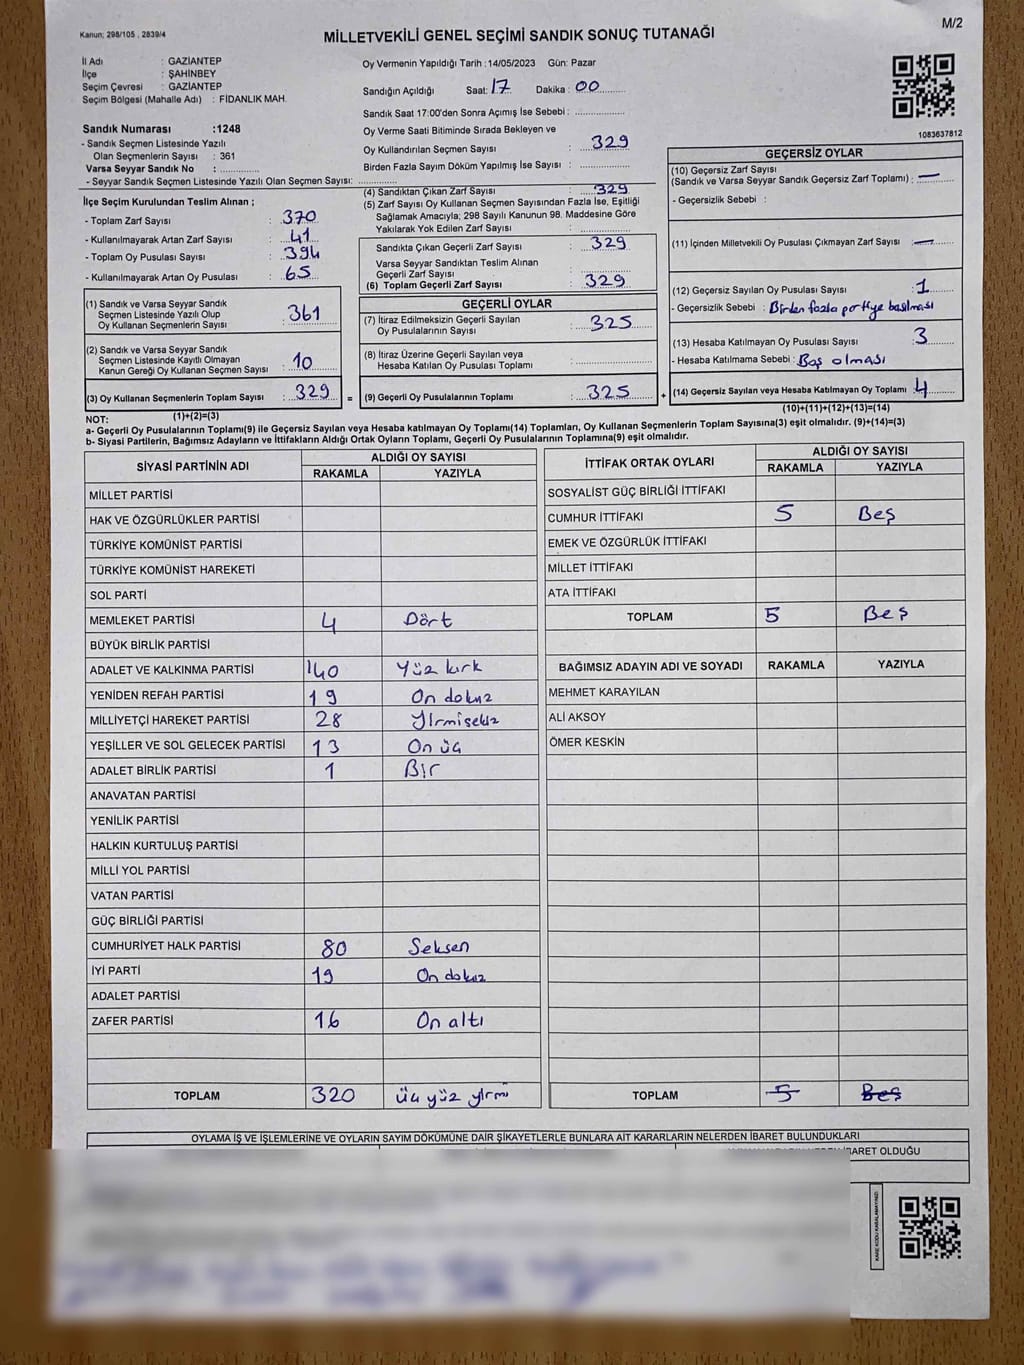 Kanun: 298/105 , 2839/4
M/2
MİLLETVEKİLİ GENEL SEÇİMİ SANDIK SONUÇ TUTANAĞI
İl Adı : GAZİANTEP
İlçe : ŞAHİNBEY
Seçim Çevresi : GAZİANTEP
Seçim Bölgesi (Mahalle Adı) : FİDANLIK MAH.
Oy Vermenin Yapıldığı Tarih :14/05/2023 Gün: Pazar
Sandığın Açıldığı Saat: 17 Dakika : 00
Sandık Saat 17:00'den Sonra Açımış İse Sebebi :
Oy Verme Saati Bitiminde Sırada Bekleyen ve
Oy Kullandırılan Seçmen Sayısı : 329
Birden Fazla Sayım Döküm Yapılmış İse Sayısı :
1083637812
Sandık Numarası :1248
- Sandık Seçmen Listesinde Yazılı
Olan Seçmenlerin Sayısı : 361
Varsa Seyyar Sandık No :
- Seyyar Sandık Seçmen Listesinde Yazılı Olan Seçmen Sayısı:
İlçe Seçim Kurulundan Teslim Alınan ;
- Toplam Zarf Sayısı : 370
- Kullanılmayarak Artan Zarf Sayısı : 41
- Toplam Oy Pusulası Sayısı : 394
- Kullanılmayarak Artan Oy Pusulası : 65
(1) Sandık ve Varsa Seyyar Sandık
Seçmen Listesinde Yazılı Olup
Oy Kullanan Seçmenlerin Sayısı : 361
(2) Sandık ve Varsa Seyyar Sandık
Seçmen Listesinde Kayıtlı Olmayan
Kanun Gereği Oy Kullanan Seçmen Sayısı : 10
(3) Oy Kullanan Seçmenlerin Toplam Sayısı : 329 =
(1)+(2)=(3)
(4) Sandıktan Çıkan Zarf Sayısı : 329
(5) Zarf Sayısı Oy Kullanan Seçmen Sayısından Fazla İse, Eşitliği
Sağlamak Amacıyla; 298 Sayılı Kanunun 98. Maddesine Göre
Yakılarak Yok Edilen Zarf Sayısı :
Sandıkta Çıkan Geçerli Zarf Sayısı : 329
Varsa Seyyar Sandıktan Teslim Alınan
Geçerli Zarf Sayısı :
(6) Toplam Geçerli Zarf Sayısı : 329
GEÇERLİ OYLAR
(7) İtiraz Edilmeksizin Geçerli Sayılan
Oy Pusulalarının Sayısı : 325
(8) İtiraz Üzerine Geçerli Sayılan veya
Hesaba Katılan Oy Pusulası Toplamı :
(9) Geçerli Oy Pusulalarının Toplamı : 325 +
GEÇERSİZ OYLAR
(10) Geçersiz Zarf Sayısı
(Sandık ve Varsa Seyyar Sandık Geçersiz Zarf Toplamı) : —
- Geçersizlik Sebebi :
(11) İçinden Milletvekili Oy Pusulası Çıkmayan Zarf Sayısı : —
(12) Geçersiz Sayılan Oy Pusulası Sayısı : 1
- Geçersizlik Sebebi : Birden fazla partiye basılması
(13) Hesaba Katılmayan Oy Pusulası Sayısı : 3
- Hesaba Katılmama Sebebi : Boş olması
(14) Geçersiz Sayılan veya Hesaba Katılmayan Oy Toplamı : 4
(10)+(11)+(12)+(13)=(14)
NOT:
a- Geçerli Oy Pusulalarının Toplamı(9) ile Geçersiz Sayılan veya Hesaba katılmayan Oy Toplamı(14) Toplamları, Oy Kullanan Seçmenlerin Toplam Sayısına(3) eşit olmalıdır. (9)+(14)=(3)
b- Siyasi Partilerin, Bağımsız Adayların ve İttifakların Aldığı Ortak Oyların Toplamı, Geçerli Oy Pusulalarının Toplamına(9) eşit olmalıdır.
SİYASİ PARTİNİN ADI ALDIĞI OY SAYISI
RAKAMLA YAZIYLA
MİLLET PARTİSİ
HAK VE ÖZGÜRLÜKLER PARTİSİ
TÜRKİYE KOMÜNİST PARTİSİ
TÜRKİYE KOMÜNİST HAREKETİ
SOL PARTİ
MEMLEKET PARTİSİ 4 Dört
BÜYÜK BİRLİK PARTİSİ
ADALET VE KALKINMA PARTİSİ 140 Yüz kırk
YENİDEN REFAH PARTİSİ 19 On dokuz
MİLLİYETÇİ HAREKET PARTİSİ 28 Yirmisekiz
YEŞİLLER VE SOL GELECEK PARTİSİ 13 On üç
ADALET BİRLİK PARTİSİ 1 Bir
ANAVATAN PARTİSİ
YENİLİK PARTİSİ
HALKIN KURTULUŞ PARTİSİ
MİLLİ YOL PARTİSİ
VATAN PARTİSİ
GÜÇ BİRLİĞİ PARTİSİ
CUMHURİYET HALK PARTİSİ 80 Seksen
İYİ PARTİ 19 On dokuz
ADALET PARTİSİ
ZAFER PARTİSİ 16 On altı
TOPLAM 320 üç yüz yirmi
İTTİFAK ORTAK OYLARI ALDIĞI OY SAYISI
RAKAMLA YAZIYLA
SOSYALİST GÜÇ BİRLİĞİ İTTİFAKI
CUMHUR İTTİFAKI 5 Beş
EMEK VE ÖZGÜRLÜK İTTİFAKI
MİLLET İTTİFAKI
ATA İTTİFAKI
TOPLAM 5 Beş
BAĞIMSIZ ADAYIN ADI VE SOYADI RAKAMLA YAZIYLA
MEHMET KARAYILAN
ALİ AKSOY
ÖMER KESKİN
TOPLAM 5 Beş
OYLAMA İŞ VE İŞLEMLERİNE VE OYLARIN SAYIM DÖKÜMÜNE DAİR ŞİKAYETLERLE BUNLARA AİT KARARLARIN NELERDEN İBARET BULUNDUKLARI
İBARET OLDUĞU
KARE KODU KARALAMAYINIZ!